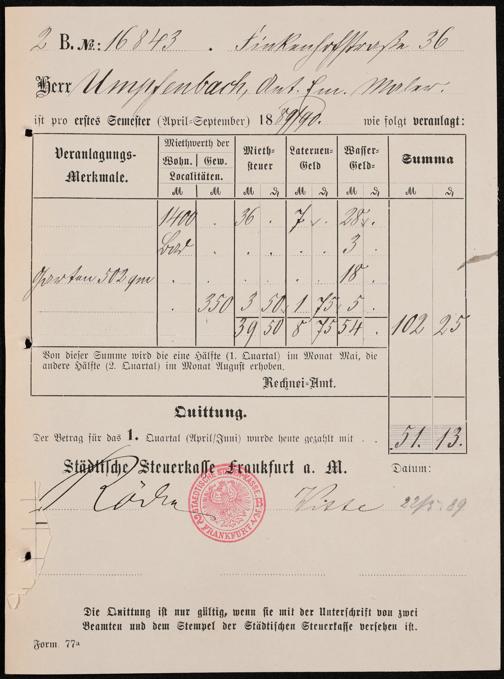 2 B. No.: 16843. Finkenhofstraße 36
Herr Umpfenbach, Ant. Em. Maler.
ist pro erstes Semester (April-September) 1889/90. wie folgt veranlagt:
Veranlagungs-Merkmale. Miethwerth der Wohn. Gew. Localitäten. Mieth-steuer Laternen-Geld Wasser-Geld- Summa
M M M ₰ M ₰ M ₰ M ₰
1400 . 36 . 7 . 28 .
Bad . . . . . 3 .
Garten 502 qm . . . . . 18 .
. 350 3 50 1 75 5 .
39 50 8 75 54 . 102 25
Von dieser Summe wird die eine Hälfte (1. Quartal) im Monat Mai, die
andere Hälfte (2. Quartal) im Monat August erhoben.
Rechnei-Amt.
Quittung.
Der Betrag für das 1. Quartal (April/Juni) wurde heute gezahlt mit . . 51. 13.
Städtische Steuerkasse Frankfurt a. M. Datum:
22/5 89
STAEDTISCHE STEUERKASSE
FRANKFURT A/M
Die Quittung ist nur gültig, wenn sie mit der Unterschrift von zwei
Beamten und dem Stempel der Städtischen Steuerkasse versehen ist.
Form 77a